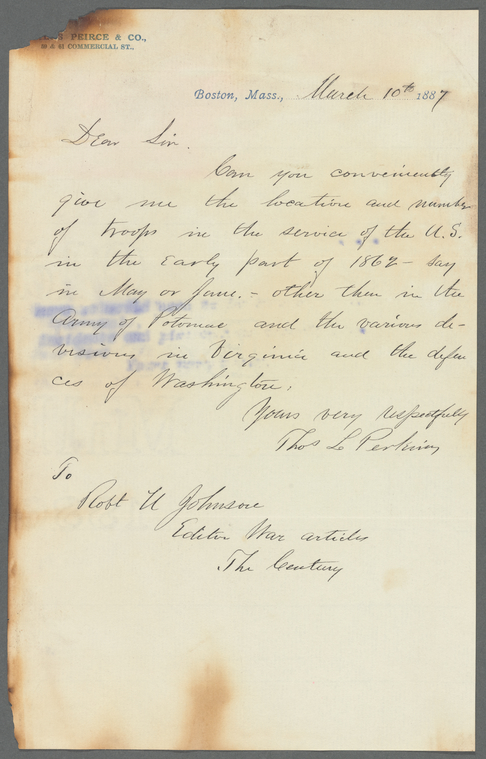 PEIRCE & CO.,
COMMERCIAL ST.,
Boston, Mass., March 10th 1887
Dear Sir.
Can you conveniently
give me the location and number
of troops in the service of the U.S.
in the Early part of 1862 - say
in May or June. - other then in the
Army of Potomac and the various de-
visions in Virginia and the defen
ces of Washington.
Yours very respectfully
Thos L Perkins
To
Robt U Johnson
Editor War articles
The Century